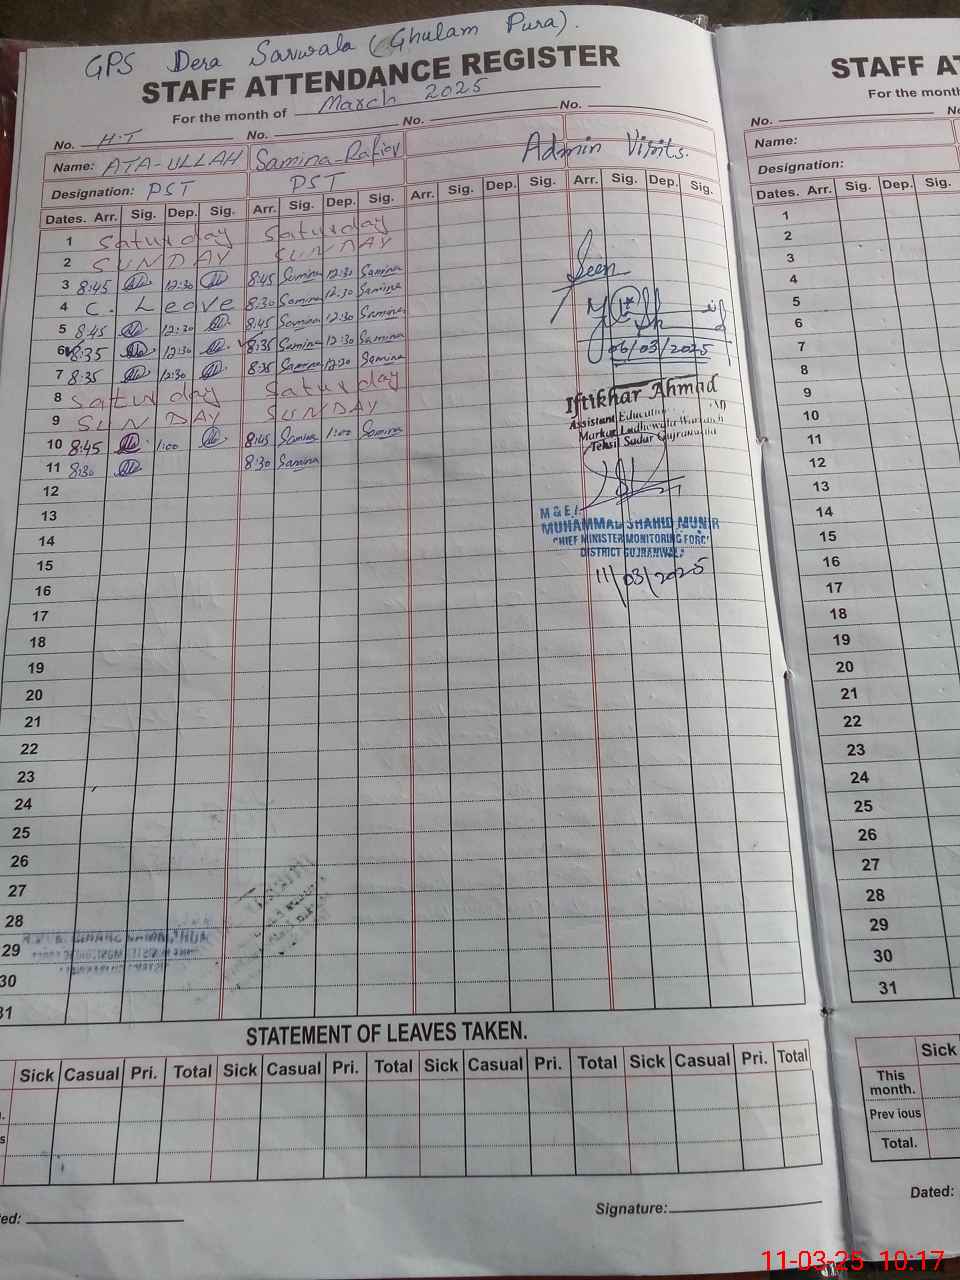 GPS Dera Sarwala (Ghulam Pura).
STAFF ATTENDANCE REGISTER
For the month of March 2025
No. H.T No. No. No.
Name: ATA-ULLAH Samina-Rafiq Admin Visits.
Designation: PST PST
Dates. Arr. Sig. Dep. Sig. Arr. Sig. Dep. Sig. Arr. Sig. Dep. Sig. Arr. Sig. Dep. Sig.
1 Saturday Saturday
2 SUNDAY SUNDAY
3 8:45 12:30 8:45 Samina 12:30 Samina
4 C. Leave 8:30 Samina 12:30 Samina
5 8:45 12:30 8:45 Samina 12:30 Samina
6 8:35 12:30 8:35 Samina 12:30 Samina
7 8:35 12:30 8:35 Samina 12:30 Samina
8 Saturday Saturday
9 SUNDAY SUNDAY
10 8:45 1:00 8:45 Samina 1:00 Samina
11 8:30 8:30 Samina
12
13
14
15
16
17
18
19
20
21
22
23
24
25
26
27
28
29
30
31
Seen
06/03/2025
Iftikhar Ahmad
Assistant Education
Markaz Ladhewala Warraich
Tehsil Sadar Gujranwala
M & E
MUHAMMAD SHAHID MUNIR
CHIEF MINISTER MONITORING FORC
DISTRICT GUJRANWALA
11/03/2025
STATEMENT OF LEAVES TAKEN.
Sick Casual Pri. Total Sick Casual Pri. Total Sick Casual Pri. Total Sick Casual Pri. Total
Signature:
STAFF AT
For the month
No.
Name:
Designation:
Dates. Arr. Sig. Dep. Sig.
1
2
3
4
5
6
7
8
9
10
11
12
13
14
15
16
17
18
19
20
21
22
23
24
25
26
27
28
29
30
31
Sick
This month.
Prev ious
Total.
Dated:
11-03-25 10:17